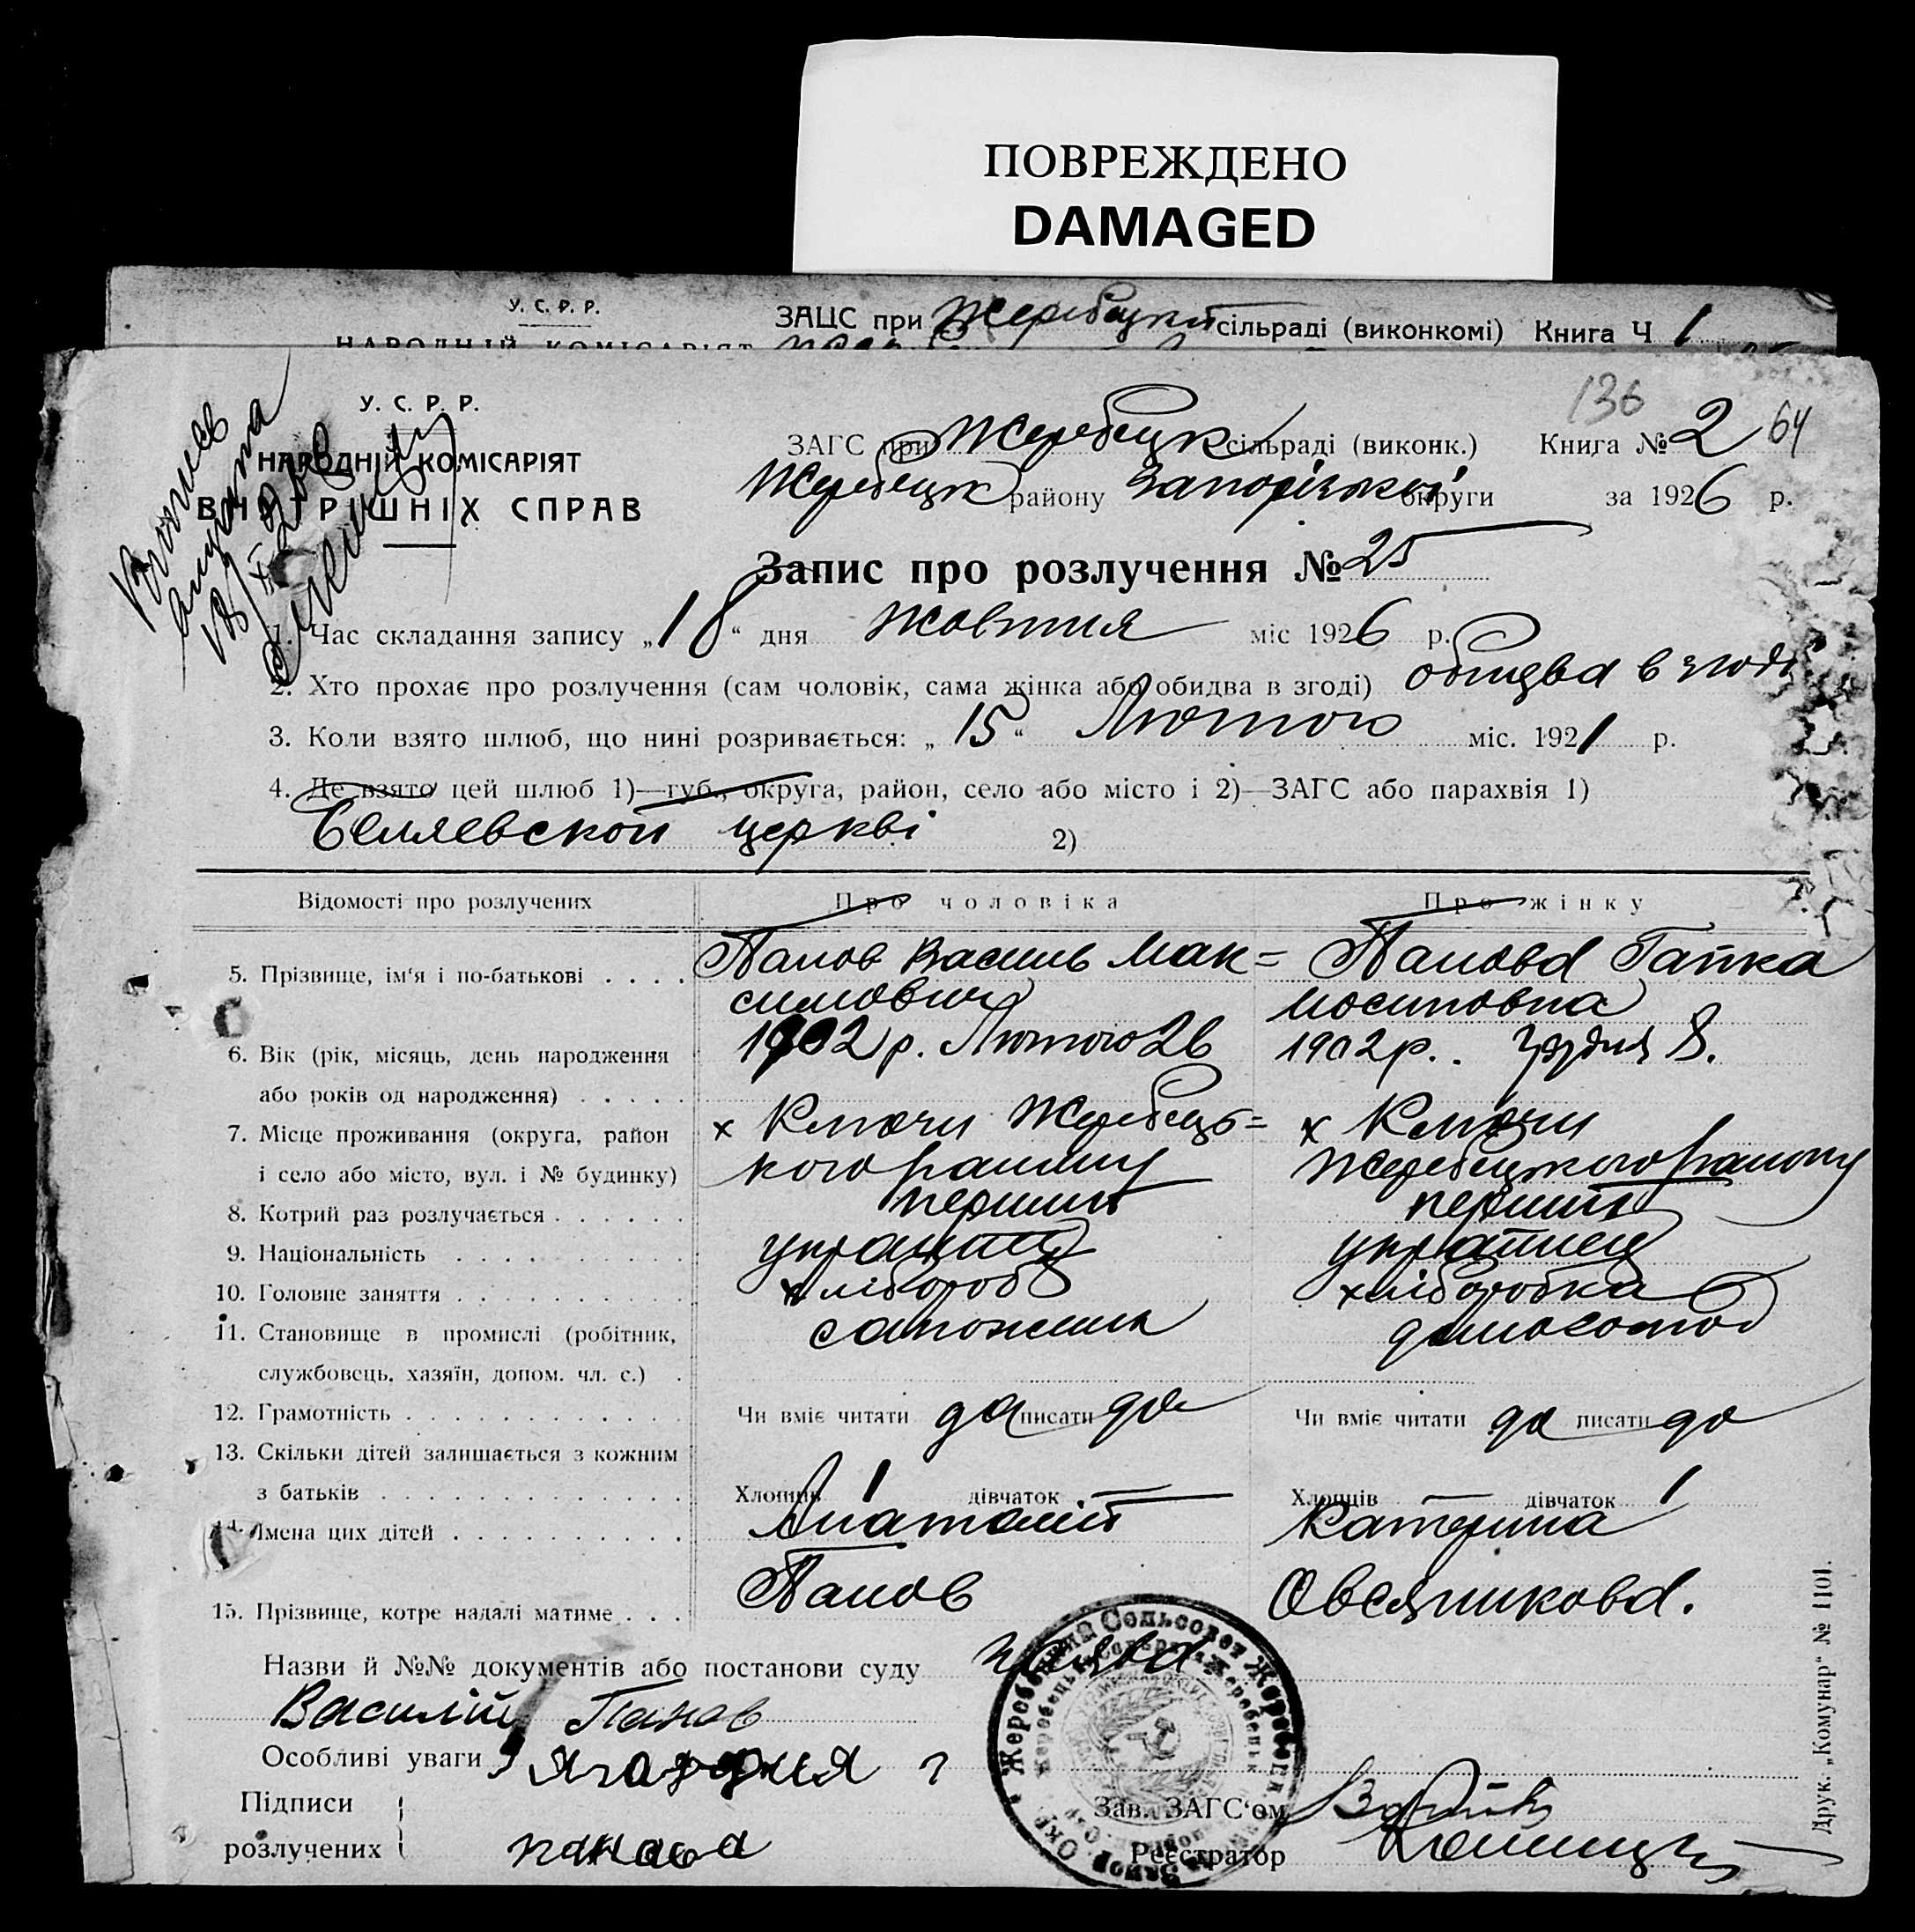 ПОВРЕЖДЕНО
DAMAGED
У. С. Р. Р.
ЗАЦС при Жеребецкій сільраді (виконкомі) Книга Ч 1
НАРОДНІЙ КОМІСАРІЯТ
136
У. С. Р. Р.
ЗАГС при Жеребецк сільраді (виконк.) Книга № 2 64
НАРОДНІЙ КОМІСАРІЯТ
Жеребецк району Запорізької округи за 1926 р.
ВНУТРІШНІХ СПРАВ
Запис про розлучення № 25
1. Час складання запису „18“ дня жовтня міс 1926 р.
2. Хто прохає про розлучення (сам чоловік, сама жінка або обидва в згоді) обидва в згоді
3. Коли взято шлюб, що нині розривається: „15“ Лютого міс. 1921 р.
4. Де взято цей шлюб 1)—губ., округа, район, село або місто і 2)—ЗАГС або парахвія 1)
Беляевской церкві 2)
Відомості про розлучених Про чоловіка Про жінку
5. Прізвище, ім‘я і по-батькові . . . . Панов Василь Мак= Панова Гапка
симович Иосиповна
6. Вік (рік, місяць, день народження 1902 р. Лютого 26 1902 р. Грудня 8.
або років од народження) . . . . .
7. Місце проживання (округа, район х Ключи Жеребець= х Ключи
і село або місто, вул. і № будинку) кого району Жеребецкого району
8. Котрий раз розлучається . . . . . . перший перший
9. Національність . . . . . . . . . українец українец
10. Головне заняття . . . . . . . . . хлібороб хліборобка
11. Становище в промислі (робітник, сапожник домохоз
службовець, хазяїн, допом. чл. с.) .
12. Грамотність . . . . . . . . . . . . Чи вміє читати да писати да Чи вміє читати да писати да
13. Скільки дітей залишається з кожним
з батьків . . . . . . . . . . . . . Хлопців 1 дівчаток — Хлопців — дівчаток 1
14. Імена цих дітей . . . . . . . . . . Анатолій Катерина
15. Прізвище, котре надалі матиме . . . Панов Овсяникова.
Назви й №№ документів або постанови суду
Василій Панов
Особливі уваги
Підписи
розлучених панова
Зав. ЗАГС‘ом
Реєстратор
Друк. „Комунар“ № 1101.